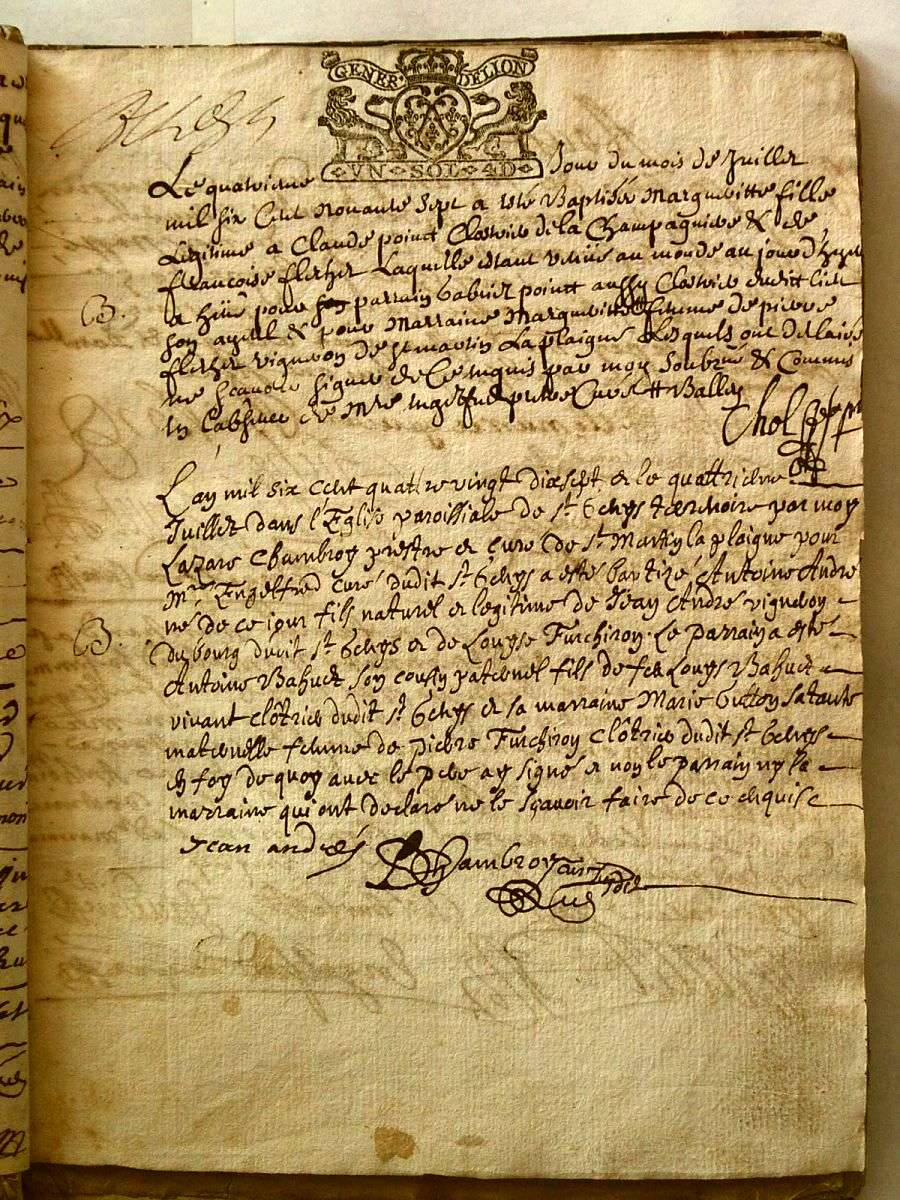 GENER · DELION
VN · SOL · 4D
Le quatrieme Jour du mois de Juillet
mil six Cent Nonante Sept a esté Baptisée Margueritte fille
Legitime a Claude pointt de la Champagniere & de
francoise Laquelle estant venüe au monde au jour
a hëu pour parrain pointt aussy dudit lieu
son ayeul & pour Marraine Margueritte femme de pierre
vigneron de St martin La plaigne Lesquels ont delairé
ne scavoir signer de Ce inquis par moy soubzné & Commis
En Labsence de Mre prebre Curé
B.
Lan mil six cent quattre vingt dixsept & le quattrieme
Juillet dans l'Eglise paroissiale de St par moy
Lazare Chambroy prestre & curé de St Martin la plaigne pour
Mre Engelfred curé dudit St a esté baptizé Antoine André
né de ce iour fils naturel & legitime de Jean André vigneron
du bourg dudit St & de Louyse Furchiron. Le parrain a esté
Antoine Bahuet son cousin paternel fils de feu Louys Bahuet
vivant clôtrier dudit St & sa marraine Marie sa tante
maternelle femme de pierre Furchiron clôtrier dudit St
en foy de quoy avec le pere ay signé & non le parrain ny la
marraine qui ont declaré ne le sçavoir faire de ce enquis
B.
Jean andré
Chambroy